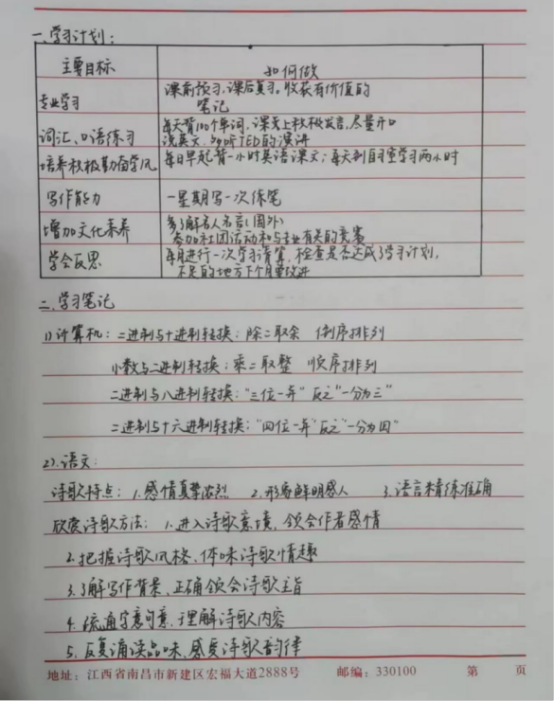 一.学习计划:
主要目标 如何做
专业学习 课前预习,课后复习。收获有价值的
笔记
词汇、口语练习 每天背100个单词,课关上积极发言,尽量开口
说英文,多听TED的演讲
培养积极勤奋学风 每日早起背一小时英语课文;每天到自习室学习两小时
写作能力 一星期写一次练笔
增加文化素养 多了解名人名言(国外)
参加社团活动和与专业有关的竞赛
学会反思 每月进行一次学习清算,检查是否达成了学习计划,
不足的地方下个月要改进
二.学习笔记
1)计算机:二进制与十进制转换:除二取余 倒序排列
小数与二进制转换:乘二取整 顺序排列
二进制与八进制转换:"三位一并" 反之"一分为三"
二进制与十六进制转换:"四位一并"反之"一分为四"
2).语文:
诗歌特点: 1.感情真挚浓烈 2.形象鲜明感人 3.语言精练准确
欣赏诗歌方法: 1.进入诗歌意境,领会作者感情
2.把握诗歌风格、体味诗歌情趣
3.了解写作背景,正确领会诗歌主旨
4.疏通字意句意,理解诗歌内容
5.反复诵读品味,感受诗歌韵律
地址:江西省南昌市新建区宏福大道2888号 邮编:330100 第 页